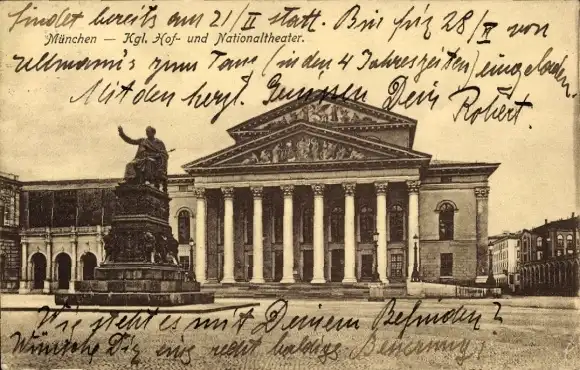 findet bereits am 21/II statt. Bin für 28/II von
München — Kgl. Hof- und Nationaltheater.
Ullmann's zum Tanz (in den 4 Jahreszeiten) eingeladen.
Mit den herzl. Grüssen Dein Robert.
Wie steht es mit Deinem Befinden?
Wünsche Dir eine recht baldige Besserung,